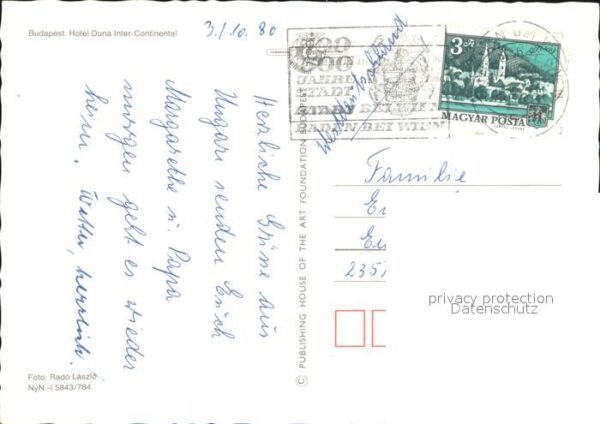 Budapest. Hotel Duna Inter-Continental
3./10. 80
Herzliche Grüsse aus
Ungarn senden Euch
Margarethe u. Papa
morgen geht es wieder
heim. Wetter, herrlich!
Foto: Radó László
NyN.-I 5843/784.
© PUBLISHING HOUSE OF THE ART FOUNDATION BUDAPEST
500
JAHRE
STADT
BADEN BEI WIEN
3 Ft
MAGYAR POSTA
Familie
235
privacy protection
Datenschutz